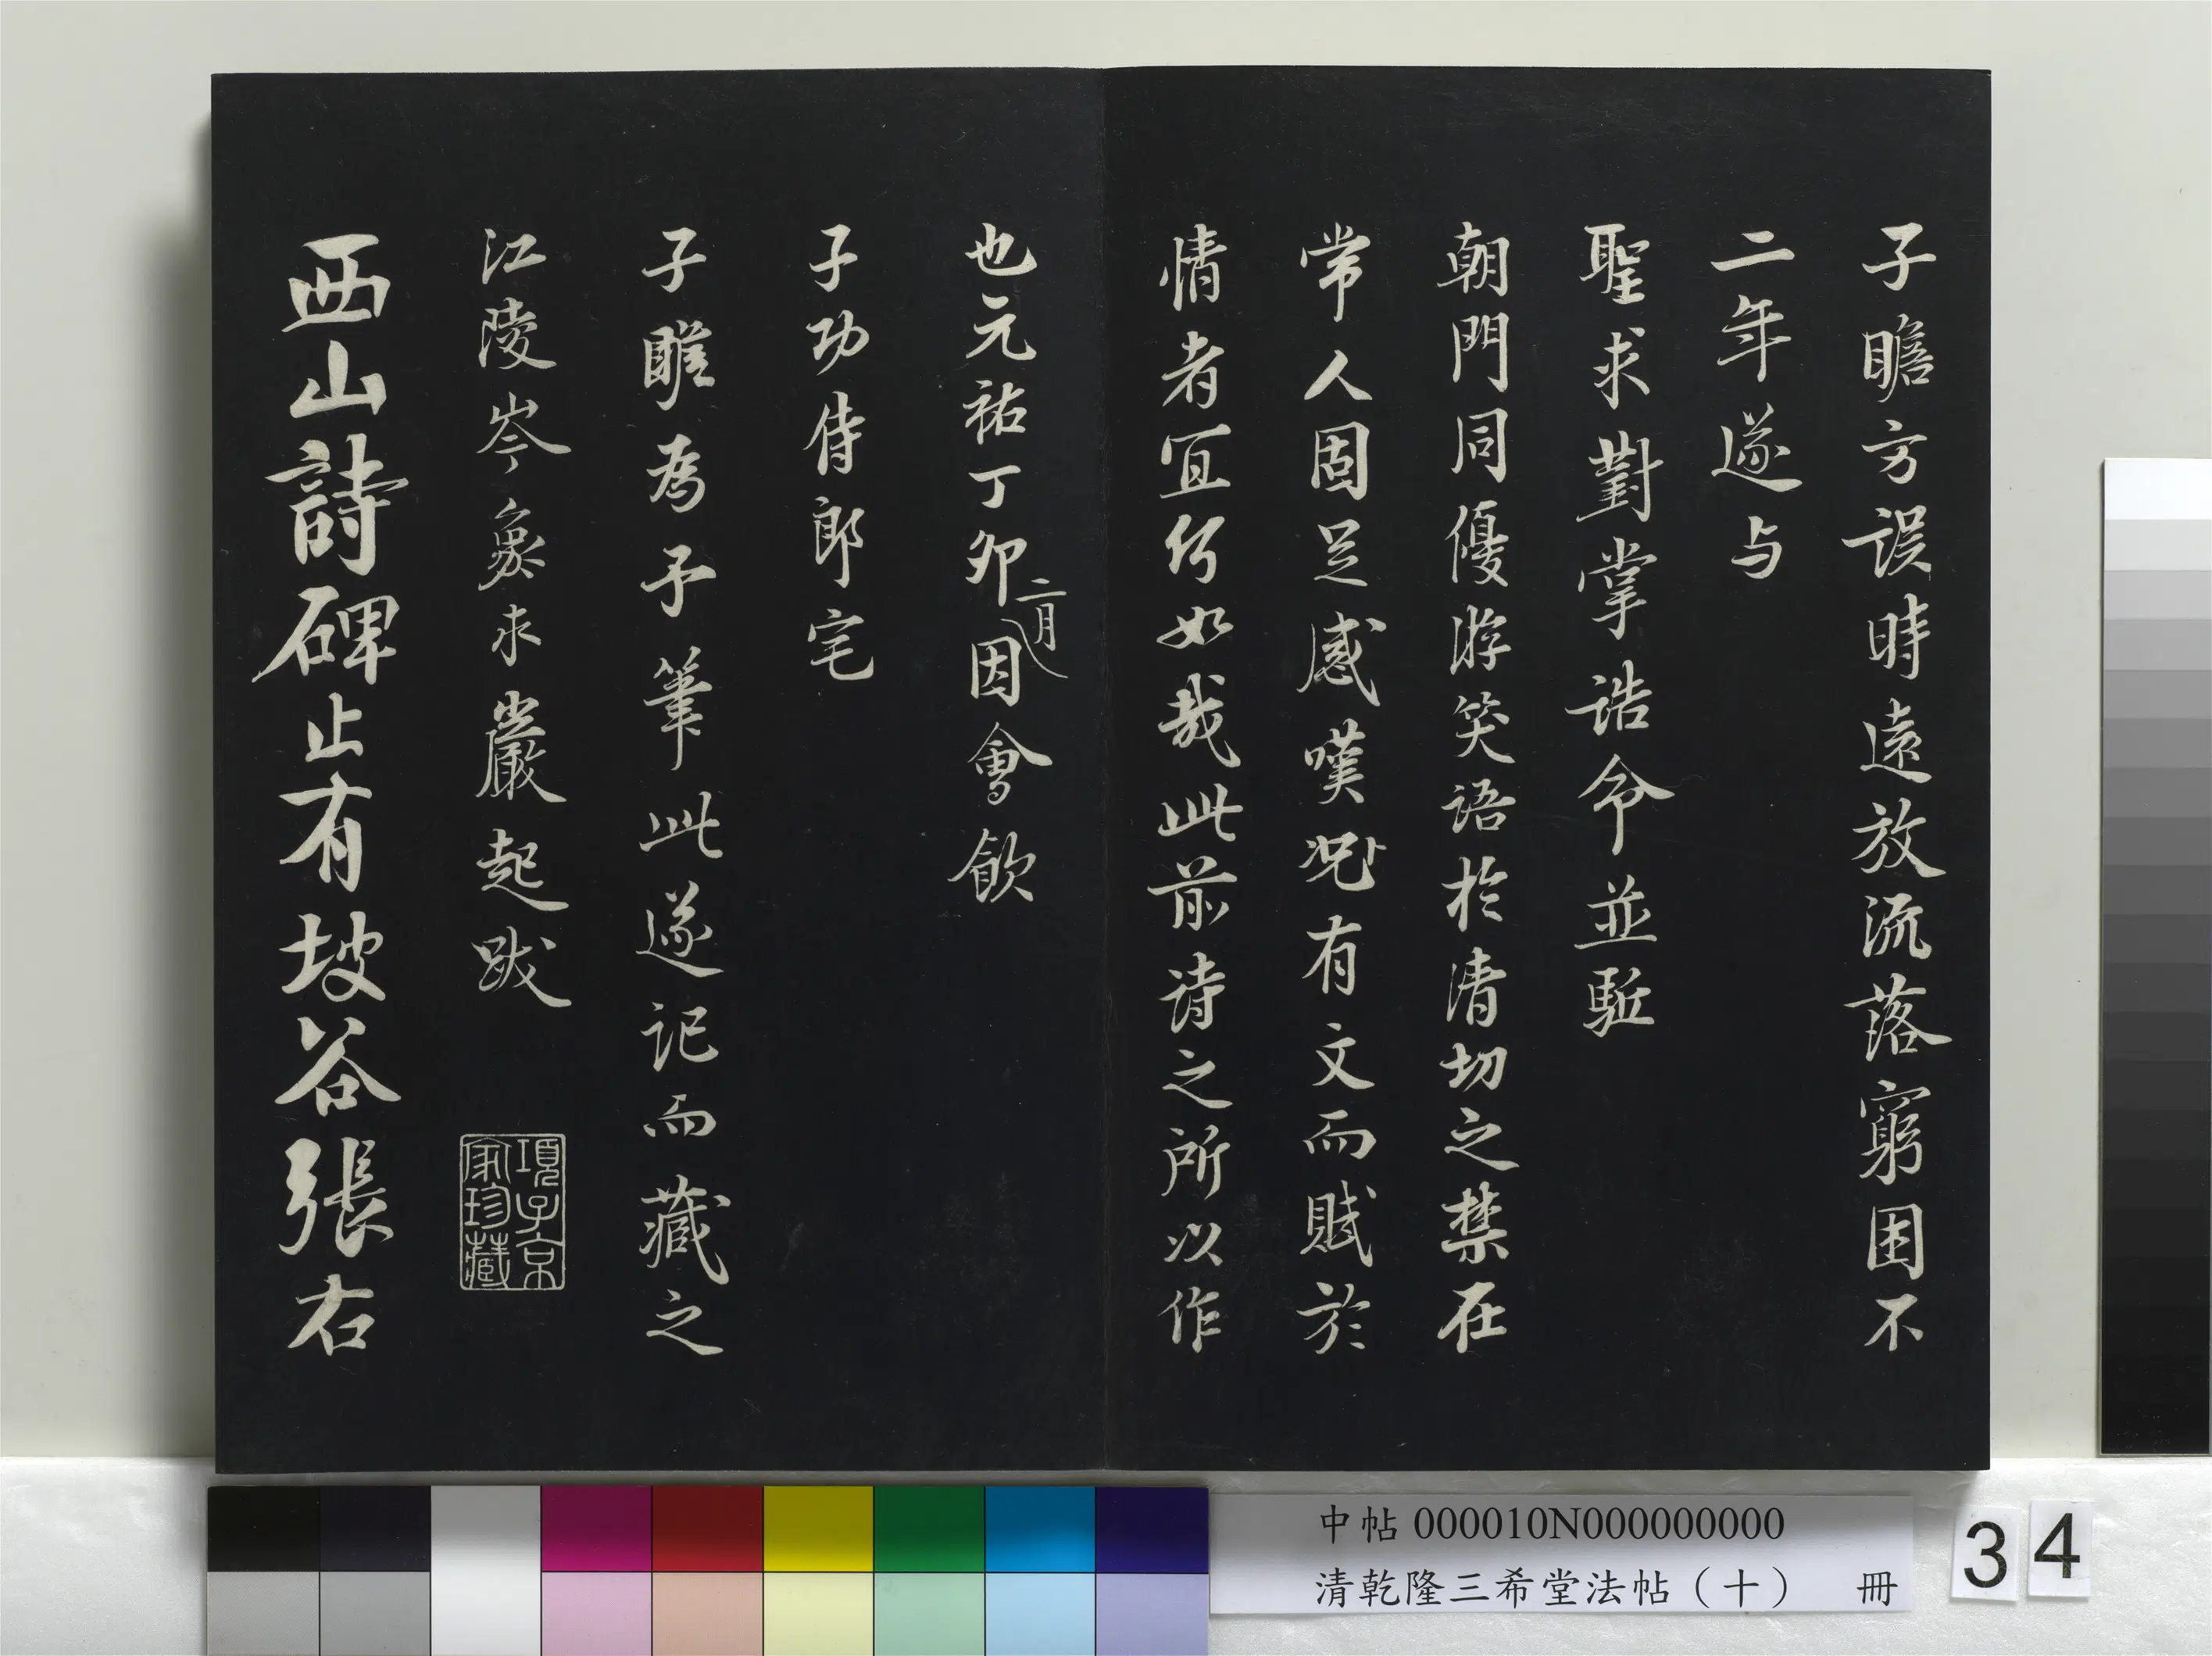 子瞻方誤時遠放流落窮困不
二年遂与
聖求對掌誥令並駈
朝門同優游笑語於清切之禁在
常人固足感嘆况有文而賦於
情者宜何如哉此前诗之所以作
也元祐丁卯二月因會飲
子功侍郎宅
子雎為予筆此遂記而藏之
江陵岑象求巖起跋
項子京
家珍藏
西山詩碑止有坡谷張右
中帖 000010N000000000
清乾隆三希堂法帖（十） 冊
34